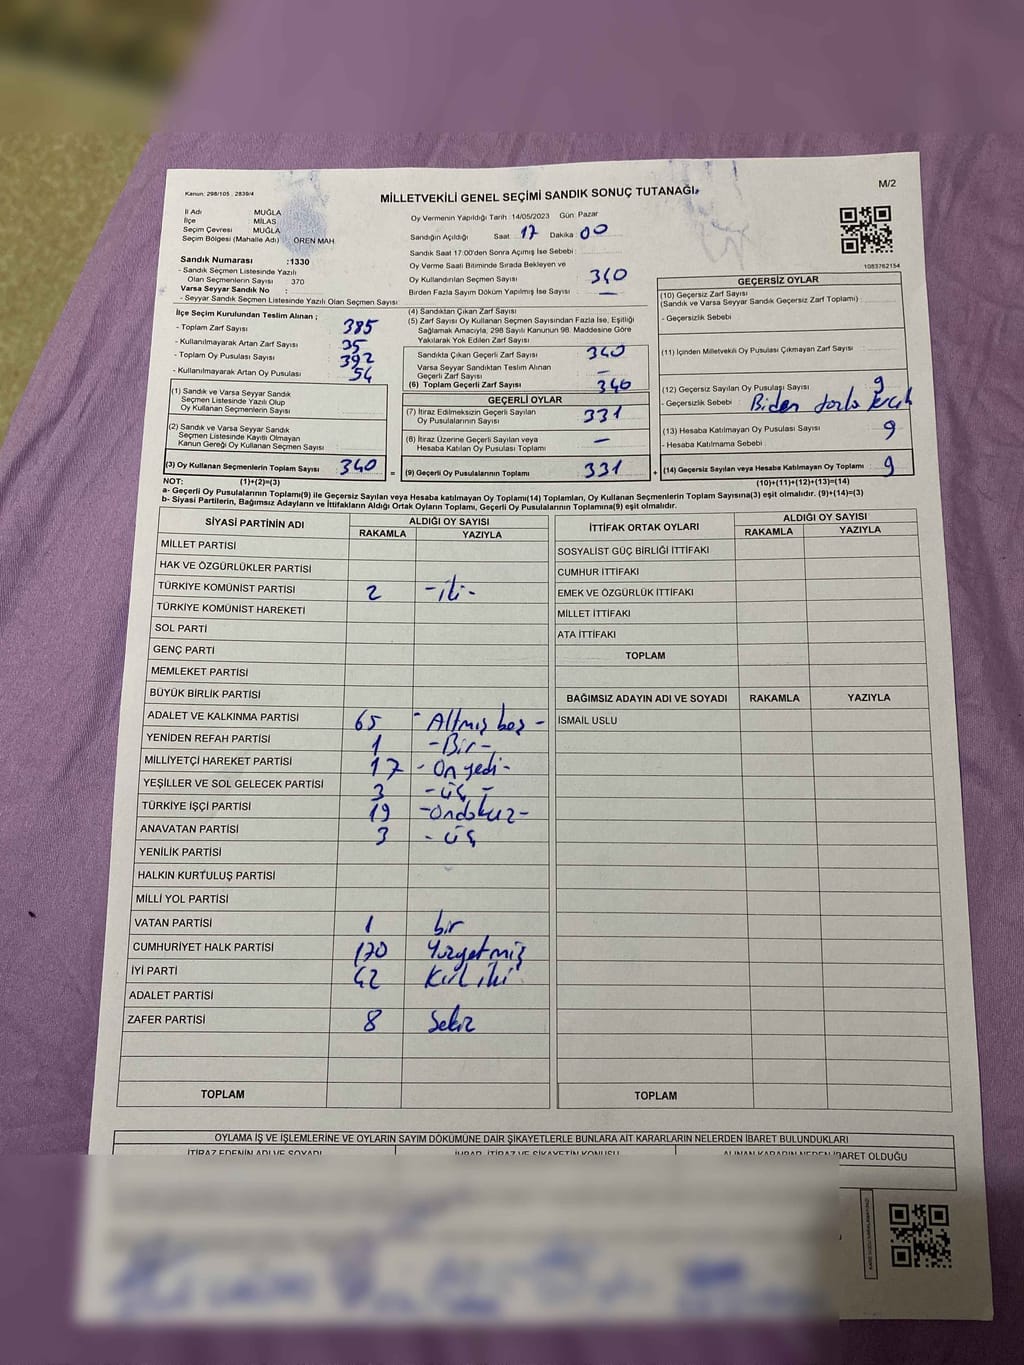 Kanun: 298/105 , 2839/4
MİLLETVEKİLİ GENEL SEÇİMİ SANDIK SONUÇ TUTANAĞI
M/2
İl Adı MUĞLA
İlçe MİLAS
Seçim Çevresi MUĞLA
Seçim Bölgesi (Mahalle Adı) ÖREN MAH
Sandık Numarası :1330
- Sandık Seçmen Listesinde Yazılı
Olan Seçmenlerin Sayısı 370
Varsa Seyyar Sandık No :
- Seyyar Sandık Seçmen Listesinde Yazılı Olan Seçmen Sayısı
Oy Vermenin Yapıldığı Tarih :14/05/2023 Gün: Pazar
Sandığın Açıldığı Saat 17 Dakika 00
Sandık Saat 17:00'den Sonra Açımış İse Sebebi :
Oy Verme Saati Bitiminde Sırada Bekleyen ve
Oy Kullandırılan Seçmen Sayısı 340
Birden Fazla Sayım Döküm Yapılmış İse Sayısı —
1083762154
İlçe Seçim Kurulundan Teslim Alınan ;
- Toplam Zarf Sayısı 385
- Kullanılmayarak Artan Zarf Sayısı 35
- Toplam Oy Pusulası Sayısı 392
- Kullanılmayarak Artan Oy Pusulası 54
(1) Sandık ve Varsa Seyyar Sandık
Seçmen Listesinde Yazılı Olup
Oy Kullanan Seçmenlerin Sayısı
(2) Sandık ve Varsa Seyyar Sandık
Seçmen Listesinde Kayıtlı Olmayan
Kanun Gereği Oy Kullanan Seçmen Sayısı
(3) Oy Kullanan Seçmenlerin Toplam Sayısı 340 =
(4) Sandıktan Çıkan Zarf Sayısı
(5) Zarf Sayısı Oy Kullanan Seçmen Sayısından Fazla İse, Eşitliği
Sağlamak Amacıyla, 298 Sayılı Kanunun 98. Maddesine Göre
Yakılarak Yok Edilen Zarf Sayısı
Sandıkta Çıkan Geçerli Zarf Sayısı 340
Varsa Seyyar Sandıktan Teslim Alınan
Geçerli Zarf Sayısı —
(6) Toplam Geçerli Zarf Sayısı 340
GEÇERLİ OYLAR
(7) İtiraz Edilmeksizin Geçerli Sayılan
Oy Pusulalarının Sayısı 331
(8) İtiraz Üzerine Geçerli Sayılan veya
Hesaba Katılan Oy Pusulası Toplamı —
(9) Geçerli Oy Pusulalarının Toplamı 331 +
GEÇERSİZ OYLAR
(10) Geçersiz Zarf Sayısı
(Sandık ve Varsa Seyyar Sandık Geçersiz Zarf Toplamı) :
- Geçersizlik Sebebi :
(11) İçinden Milletvekili Oy Pusulası Çıkmayan Zarf Sayısı
(12) Geçersiz Sayılan Oy Pusulası Sayısı 9
- Geçersizlik Sebebi : Biden fazla
(13) Hesaba Katılmayan Oy Pusulası Sayısı 9
- Hesaba Katılmama Sebebi :
(14) Geçersiz Sayılan veya Hesaba Katılmayan Oy Toplamı 9
NOT: (1)+(2)=(3)
(10)+(11)+(12)+(13)=(14)
a- Geçerli Oy Pusulalarının Toplamı(9) ile Geçersiz Sayılan veya Hesaba katılmayan Oy Toplamı(14) Toplamları, Oy Kullanan Seçmenlerin Toplam Sayısına(3) eşit olmalıdır. (9)+(14)=(3)
b- Siyasi Partilerin, Bağımsız Adayların ve İttifakların Aldığı Ortak Oyların Toplamı, Geçerli Oy Pusulalarının Toplamına(9) eşit olmalıdır.
SİYASİ PARTİNİN ADI ALDIĞI OY SAYISI
RAKAMLA YAZIYLA
MİLLET PARTİSİ
HAK VE ÖZGÜRLÜKLER PARTİSİ
TÜRKİYE KOMÜNİST PARTİSİ 2 -iki-
TÜRKİYE KOMÜNİST HAREKETİ
SOL PARTİ
GENÇ PARTİ
MEMLEKET PARTİSİ
BÜYÜK BİRLİK PARTİSİ
ADALET VE KALKINMA PARTİSİ 65 - Altmış beş -
YENİDEN REFAH PARTİSİ 1 -Bir-
MİLLİYETÇİ HAREKET PARTİSİ 17 - On yedi-
YEŞİLLER VE SOL GELECEK PARTİSİ 3 - üç -
TÜRKİYE İŞÇİ PARTİSİ 19 -Ondokuz-
ANAVATAN PARTİSİ 3 - üç
YENİLİK PARTİSİ
HALKIN KURTULUŞ PARTİSİ
MİLLİ YOL PARTİSİ
VATAN PARTİSİ 1 bir
CUMHURİYET HALK PARTİSİ 170 Yüzyetmiş
İYİ PARTİ 42 Kırk iki
ADALET PARTİSİ
ZAFER PARTİSİ 8 Sekiz
TOPLAM
İTTİFAK ORTAK OYLARI ALDIĞI OY SAYISI
RAKAMLA YAZIYLA
SOSYALİST GÜÇ BİRLİĞİ İTTİFAKI
CUMHUR İTTİFAKI
EMEK VE ÖZGÜRLÜK İTTİFAKI
MİLLET İTTİFAKI
ATA İTTİFAKI
TOPLAM
BAĞIMSIZ ADAYIN ADI VE SOYADI RAKAMLA YAZIYLA
İSMAİL USLU
TOPLAM
OYLAMA İŞ VE İŞLEMLERİNE VE OYLARIN SAYIM DÖKÜMÜNE DAİR ŞİKAYETLERLE BUNLARA AİT KARARLARIN NELERDEN İBARET BULUNDUKLARI
İTİRAZ EDENİN ADI VE SOYADI İHBAR, İTİRAZ VE ŞİKAYETİN KONUSU ALINAN KARARIN NEDEN İBARET OLDUĞU